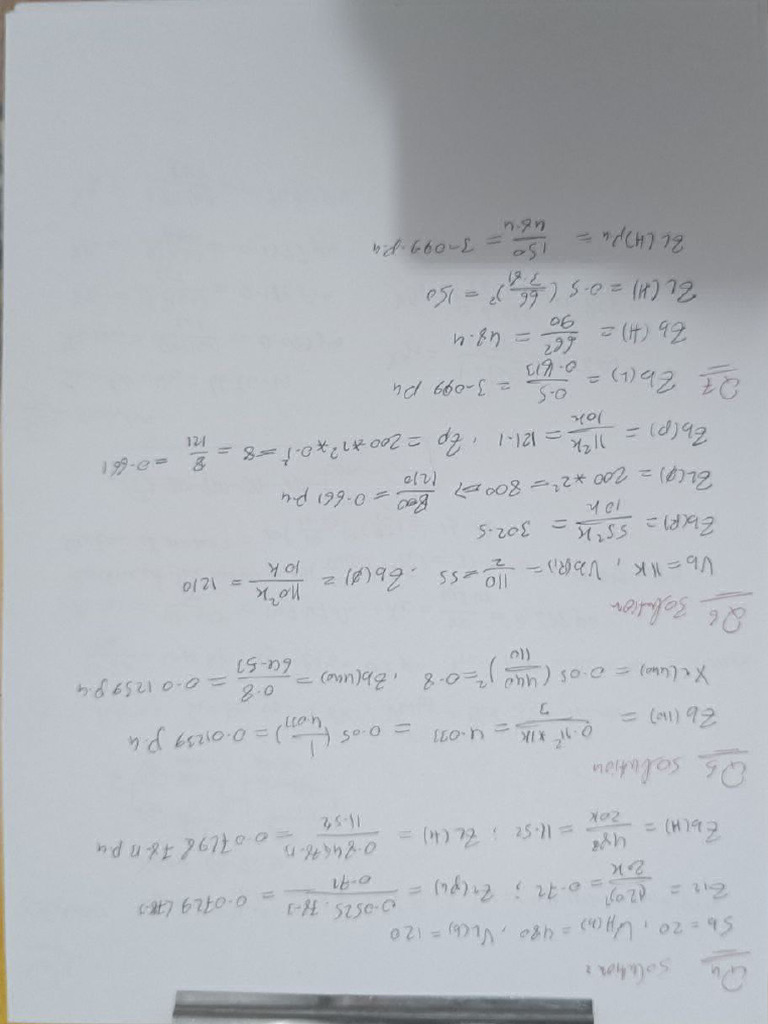 Q4 Solution:
Sb = 20, VH(b) = 480, VL(b) = 120
ZL2 = 120² / 20k = 0.72 ; ZL(pu) = 0.0525∠78.1 / 0.72 = 0.0729∠78.1
Zb(H) = 480² / 20k = 11.52 ; ZL(H) = 0.84∠78.13 / 11.52 = 0.0729∠78.13 pu
Q5 Solution
Zb(110) = 0.11² * 1k / 3 = 4.033 = 0.05 (1 / 4.033) = 0.01239 p.u
XL(440) = 0.05 (440 / 110)² = 0.8 , Zb(440) = 0.8 / 64.53 = 0.01239 p.u
Q6 Solution
Vb = 11K, Vb(R) = 110 / 2 = 55 . Zb(β) = 110²k / 10k = 1210
Zb(R) = 55²k / 10k = 302.5
ZL(β) = 200 * 2² = 800 => 800 / 1210 = 0.661 pu
Zb(P) = 11²k / 10k = 121.1 , Zp = 200 * 2² * 0.1² = 8 = 8 / 121 = 0.661
Q7 Zb(L) = 0.5 / 0.1613 = 3.099 pu
Zb(H) = 66² / 90 = 48.4
ZL(H) = 0.5 (66 / 3.81)² = 150
ZL(H)pu = 150 / 48.4 = 3.099 p.u